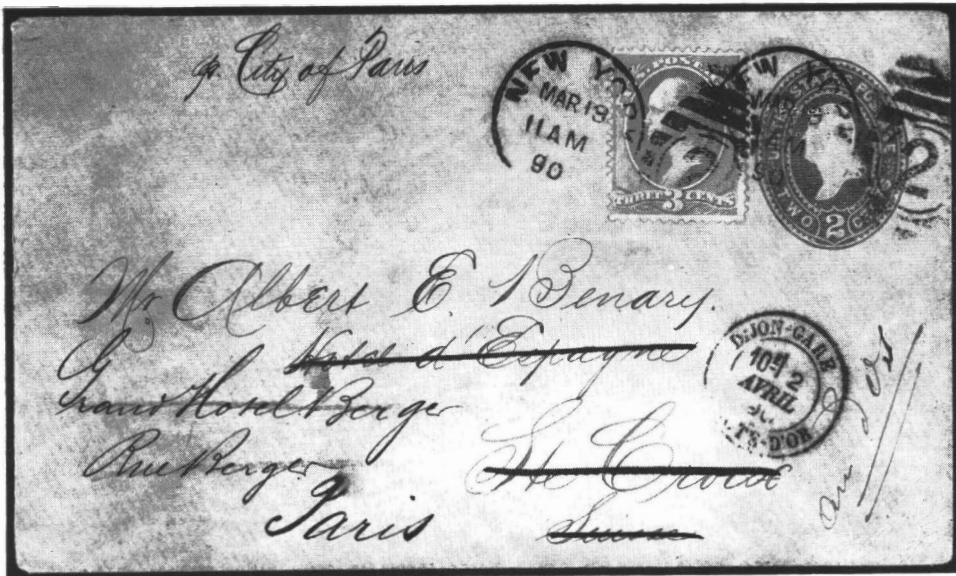 pr. City of Paris
NEW YOR
MAR 19
11 AM
90
U.S. POST
THREE 3 CENTS
EW
90
UNITED STA
TWO 2 C
2
Mr Albert E. Benary.
Hotel d'Espagne
Grand Hotel Berger
Rue Berger
Ste Croix
Paris
Suisse
DIJON-GARE
10 2
AVRIL
90
TE-D'OR